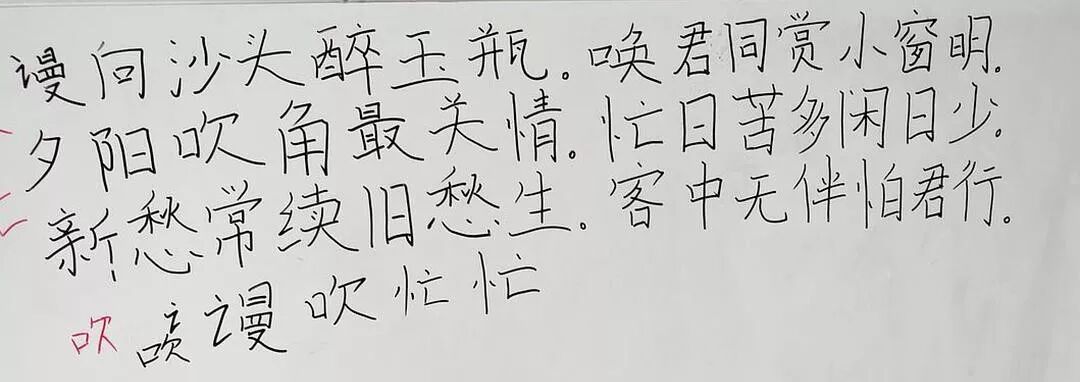 谩向沙头醉玉瓶.唤君同赏小窗明.
夕阳吹角最关情.忙日苦多闲日少.
新愁常续旧愁生.客中无伴怕君行.
吹 谩吹忙忙